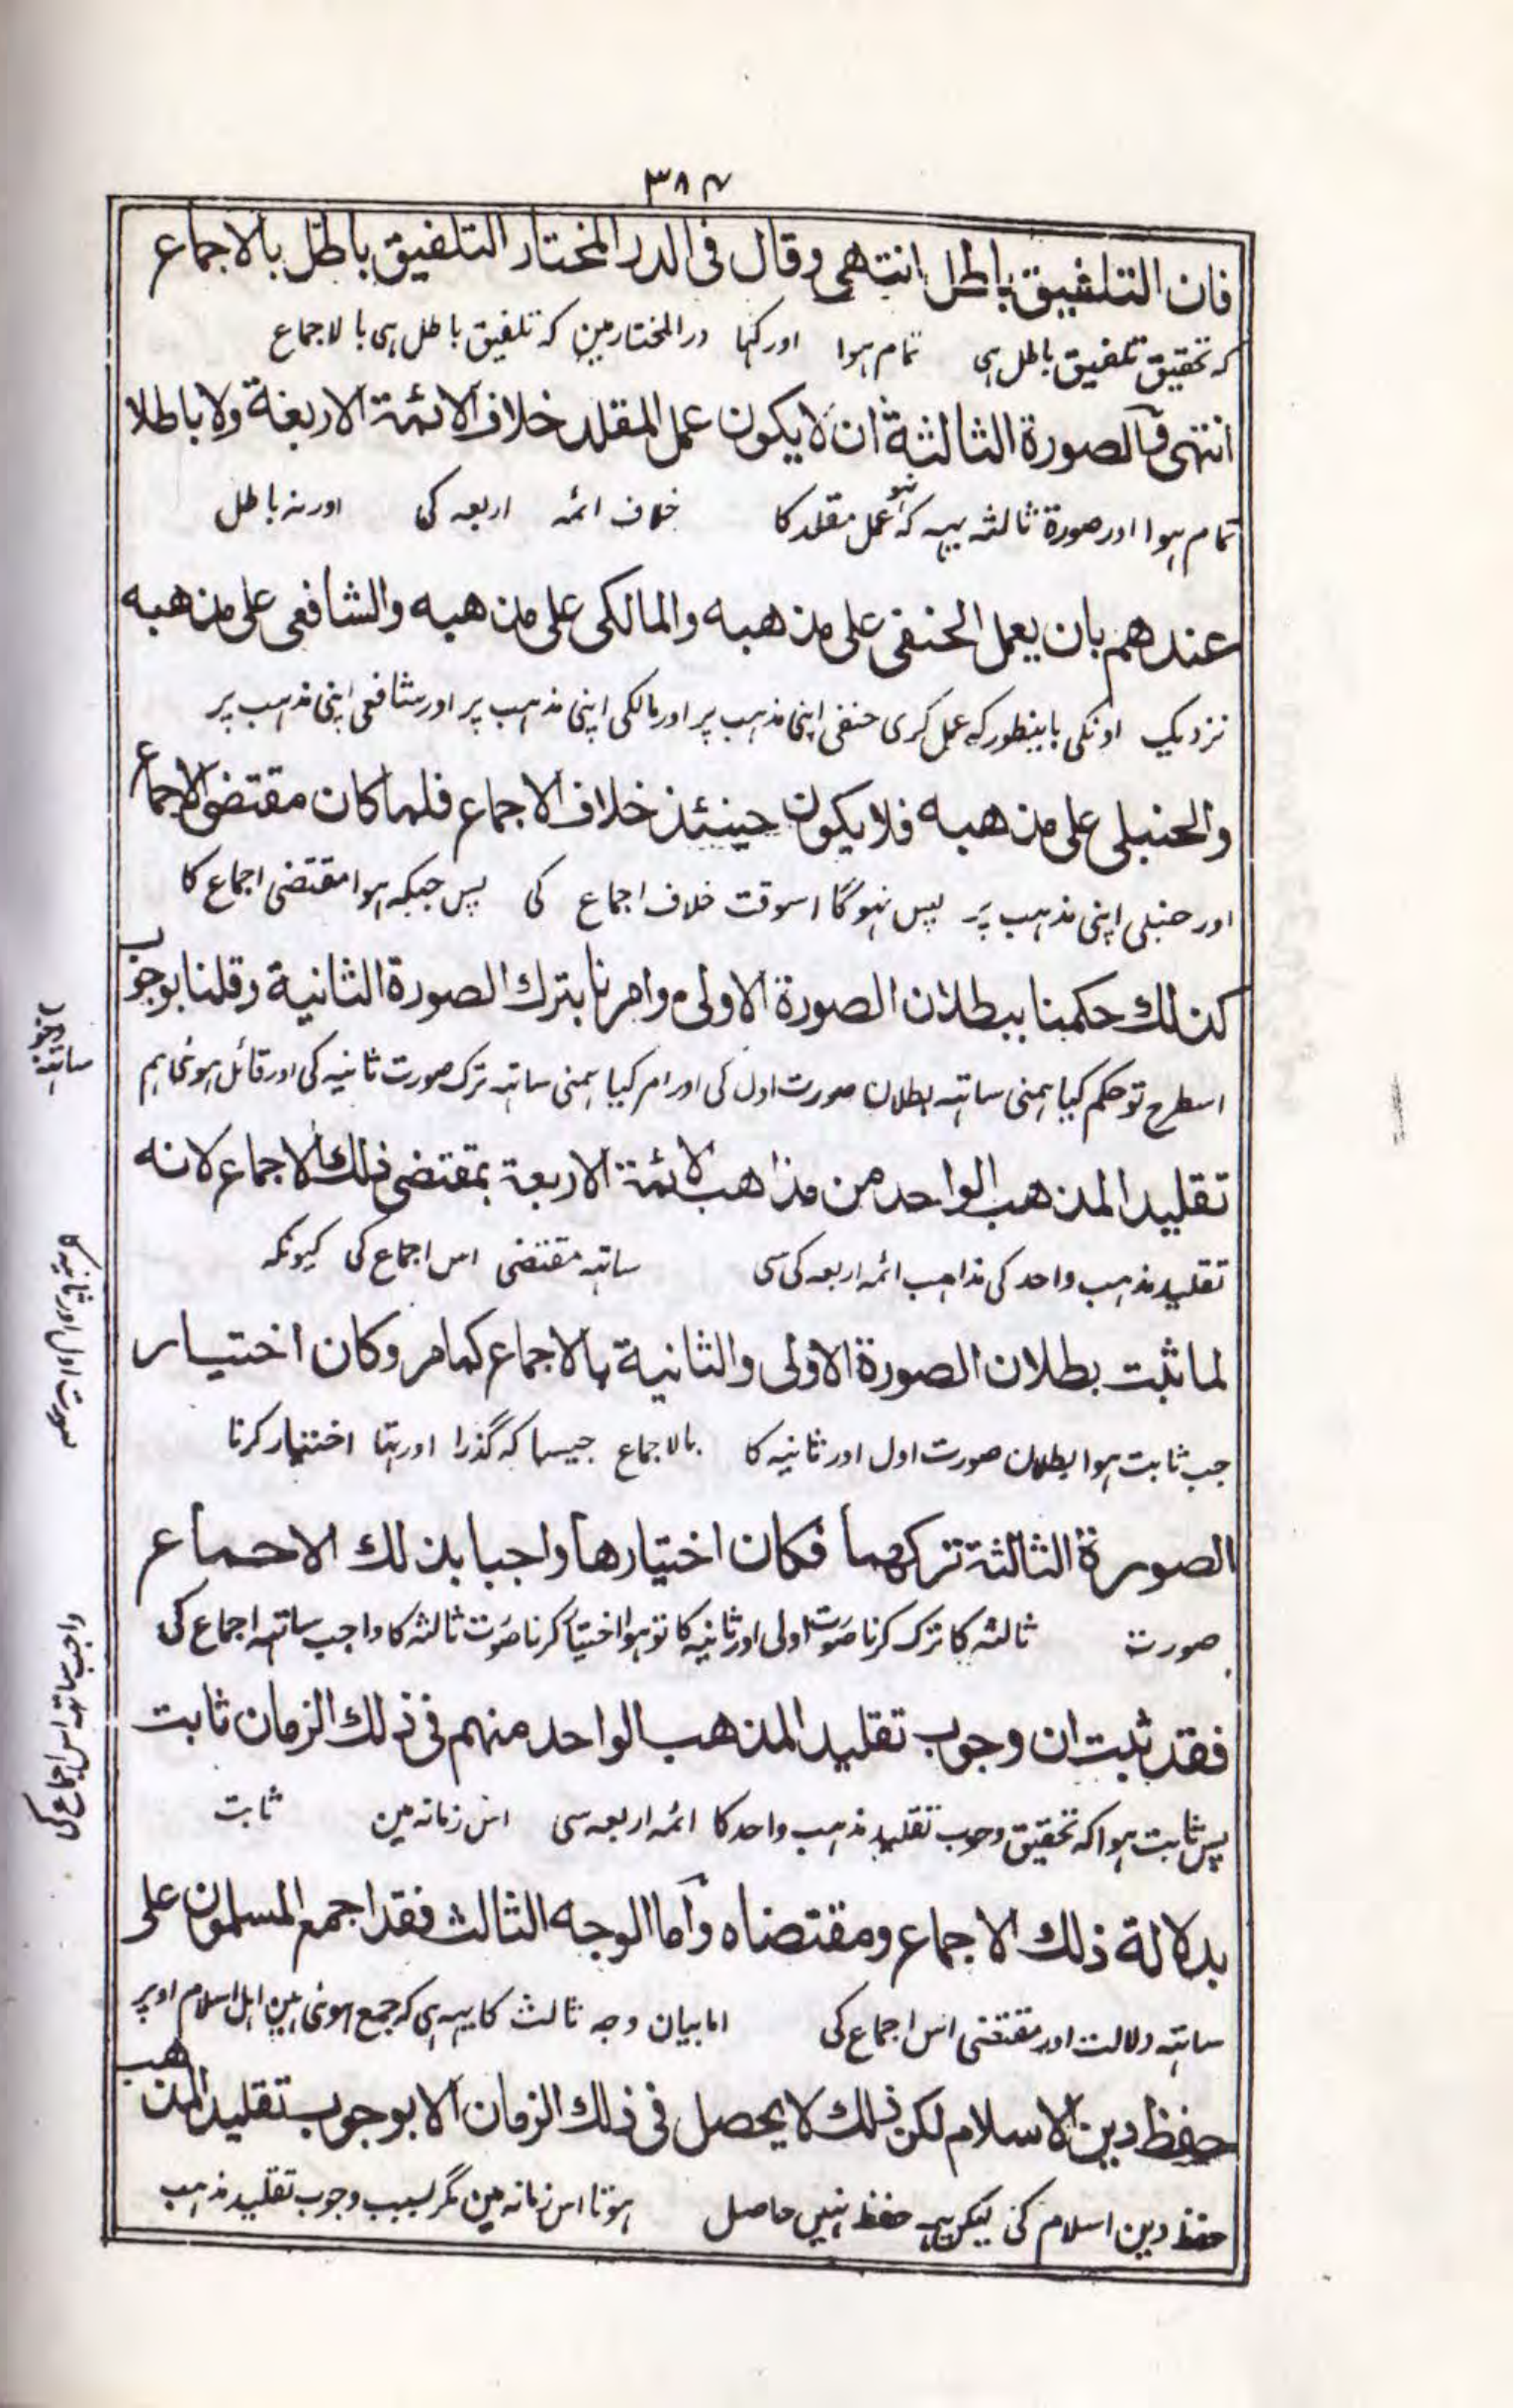 ۳۸۴
فان التلفيق باطل انتهى وقال فى الدر المختار التلفيق باطل بالاجماع
کہ تحقیق تلفیق باطل ہی تمام ہوا اور کہا درالمختار مین کہ تلفیق باطل ہی بالاجماع
انتهى والصورة الثالثة ان لا يكون عمل المقلد خلاف الائمة الاربعة ولا باطلا
تمام ہوا اور صورۃ ثالثہ یہہ کہ نہو عمل مقلد کا خلاف ائمہ اربعہ کی اور نہ باطل
عندهم بان يعمل الحنفى على مذهبه والمالكى على مذهبه والشافعى على مذهبه
نزدیک اونکی باینطور کہ عمل کری حنفی اپنی مذہب پر اور مالکی اپنی مذہب پر اور شافعی اپنی مذہب پر
والحنبلى على مذهبه فلا يكون حينئذ خلاف الاجماع فلما كان مقتضى الاجماع
اور حنبلی اپنی مذہب پر پس نہو گا اسوقت خلاف اجماع کی پس جبکہ ہوا مقتضی اجماع کا
كذلك حكمنا ببطلان الصورة الاولى وامرنا بترك الصورة الثانية وقلنا بوجوب
اسطرح تو حکم کیا ہمنی ساتہہ بطلان صورت اول کی اور امر کیا ہمنی ساتہہ ترک صورت ثانیہ کی اور قائل ہوئی ہم
تقليد المذهب الواحد من مذاهب الائمة الاربعة بمقتضى ذلك الاجماع لانه
تقلید مذہب واحد کی مذاہب ائمہ اربعہ کی سی ساتہہ مقتضی اس اجماع کی کیونکہ
لما ثبت بطلان الصورة الاولى والثانية بالاجماع كما مر وكان اختيار
جب ثابت ہوا بطلان صورت اول اور ثانیہ کا بالاجماع جیسا کہ گذرا اور تہا اختیار کرنا
الصورة الثالثة تركهما فكان اختيارها واجبا بذلك الاجماع
صورت ثالثہ کا ترک کرنا صورت اولی اور ثانیہ کا تو ہوا اختیار کرنا صورت ثالثہ کا واجب ساتہہ اجماع کی
فقد ثبت ان وجوب تقليد المذهب الواحد منهم فى ذلك الزمان ثابت
پس ثابت ہوا کہ تحقیق وجوب تقلید مذہب واحد کا ائمہ اربعہ سی اس زمانہ مین ثابت
بدلالة ذلك الاجماع ومقتضاه واما الوجه الثالث فقد اجمع المسلمون على
ساتہہ دلالت اور مقتضی اس اجماع کی اما بیان وجہ ثالث کا یہہ ہی کہ جمع ہوئی ہین اہل اسلام اوپر
حفظ دين الاسلام لكن ذلك لا يحصل فى ذلك الزمان الا بوجوب تقليد المذهب
حفظ دین اسلام کی لیکن یہہ حفظ نہین حاصل ہوتا اس زمانہ مین مگر بسبب وجوب تقلید مذہب
صورت اول اور ثانیہ کا
واجب ساتہہ اس اجماع کی